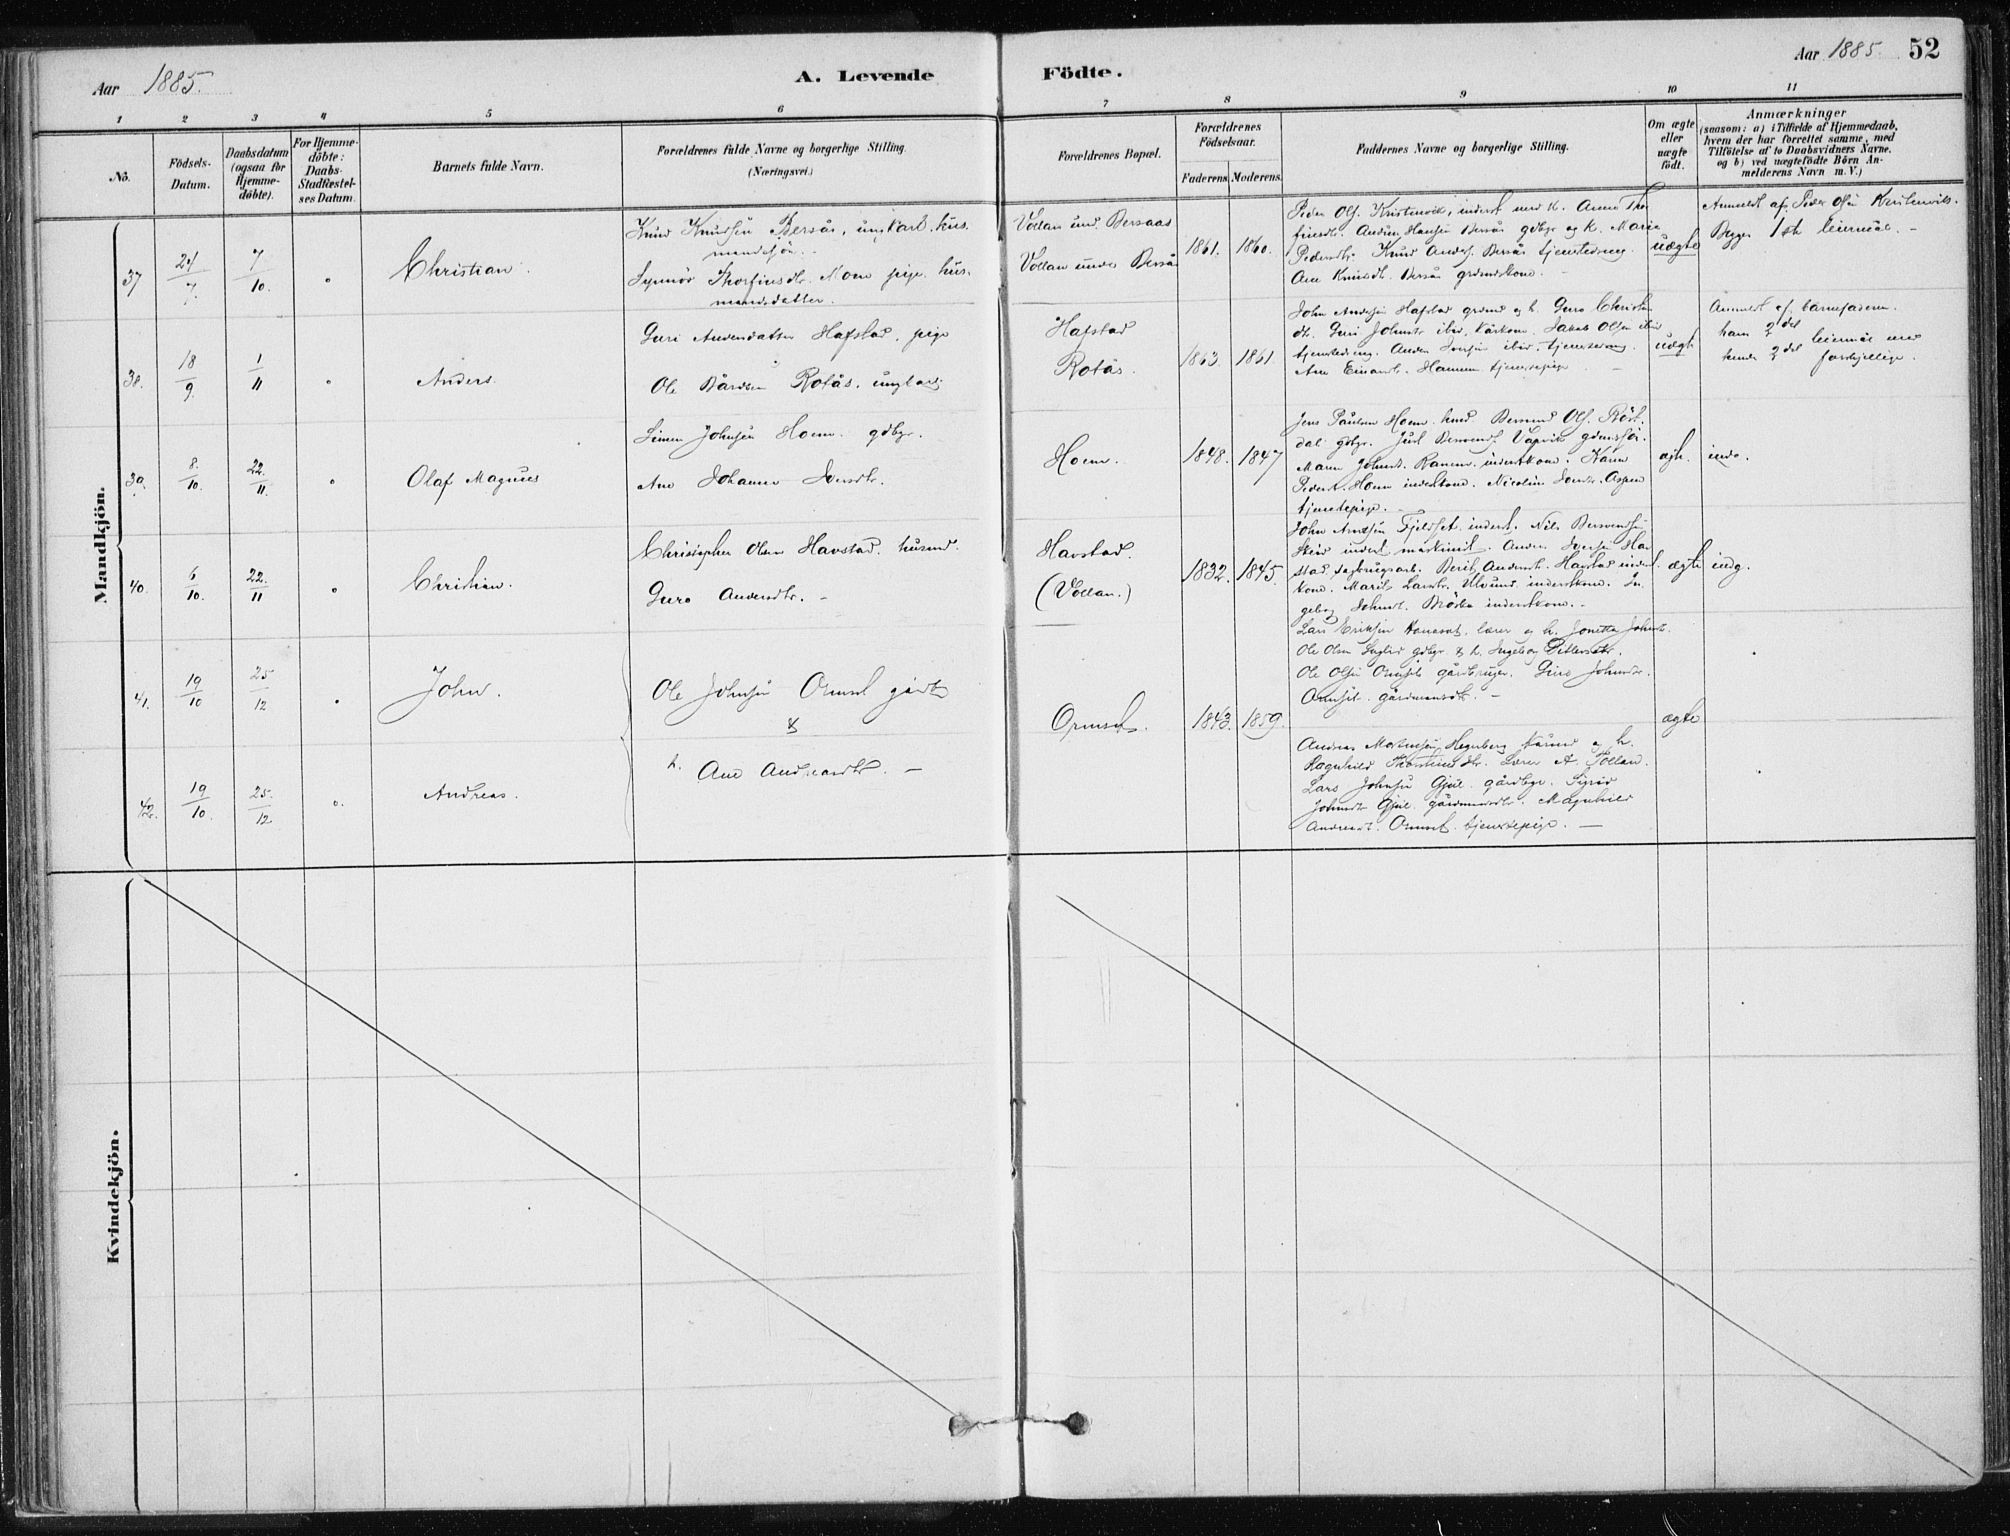 Aar 1885.
A. Levende
Födte.
Aar 1885. 52
1 2 3 4 5 6 7 8 9 10 11
No.
Födsels-
Datum.
Daabsdatum
(ogsaa för
Hjemme-
döbte).
For Hjemme-
döbte:
Daabs-
Stadfæstel-
ses Datum.
Barnets fulde Navn.
Forældrenes fulde Navne og borgerlige Stilling.
(Næringsvei.)
Forældrenes Bopæl.
Forældrenes
Födselsaar.
Faderens. Moderens.
Faddernes Navne og borgerlige Stilling.
Om ægte
eller
uægte
födt.
Anmærkninger
(saasom: a) i Tilfælde af Hjemmedaab,
hvem der har forrettet samme, med
Tilföielse af to Daabsvidners Navne,
og b) ved uægtefödte Börn An-
melderens Navn m. V.)
Mandkjön.
37 21/7. 7/10. " Christian.
Knud Knudsen Bersås, ungkarl. hus-
mandssön.
Synnør Thorfinsdtr. Moen pige. hus-
mandsdatter.
Vollan und. Bersaas
Vollan under Bersås
1861. 1860.
Peder Ols. Kristenvik, inderst med k. Anne Thor
finsdtr. Anders Hansen Bersås gdbgr og k. Marie
Pedersdtr. Knud Anders. Bersås tjenstedreng.
Ane Knudsdtr. Bersås grdmdskone.
uægte
Anmeldt af Peder Olsen Kristenvik.
Begges 1ste leiermål.
38. 18/9. 1/11 " Anders.
Guri Andersdatter Hafstad, pige
Ole Bårdsen Rotås. ungkarl.
Hafstad
Rotås.
1863. 1861
John Andersen Hafstad grdmd og k. Guro Christen
dtr. Guri Johnsdtr. ibid. Jakob Olsen ibid
tjenstedreng. Anders Iversen ibid. tjenstedreng.
Ane Einarsdtr. Hammen tjenstepige
uægte
Anmeldt af barnefaderen.
hans 2det
hendes 2det leiermål med
forskjellige.
39. 8./10. 22./11. " Olaf Magnus
Simen Johnsen Hoem. gdbgr.
Ane Johanna Iversdtr.
Hoem.
1848. 1847
Jens Paulsen Hoem. husmd. Bersvend Ols. Röst
dal gdbgr.
Maren Johnsd. Ranem. inderstkone. Karen
Pedersd. Hoem inderstkone. Nicoline Aspen
tjenstepige.
ægte. indg.
40. 6/10. 22./11 " Christian.
Christopher Olsen Havstad. husmd.
Guro Andersdtr.
Havstad.
(Vollan.)
1832. 1845.
John Arntsen Fjeldset inderst. Nils Bersvendsen
inderst maskinist. Anders Iversen Haf
stad sagbrugsarb. Berit Andersdt. Hafstad inderst
kone. Marit Larsdtr. Ulvund inderstkone. In
geborg Johnsd. inderstkone.
ægte indg.
41. 19/10 25/12 " John.
Ole Johnsen Ormset gårdb
&
k. Ane Andreasdtr.
Ormset.
1843. 1859.
Lars Eriksen lærer og k. Jonetta Johnsd.
Ole Olsen gdbgr & k. Ingeborg Pettersdtr.
Ole Olsen Ormset gårdbruger. Guro Johnsdtr.
Ormset. gårdmandsdtr.
ægte
42. 19/10. 25./12 ". Andreas.
Andreas Mortensen Hegerberg husmd og k.
Ragnhild Thorstensdtr. Lærer A. Tollan.
Lars Johnsen Gjul. gårdbgr. Sigrid
Johnsdtr. Gjul. gårdmandsdtr. Magnhild
Andreasd. Ormset. tjenstepige.
Kvindekjön.